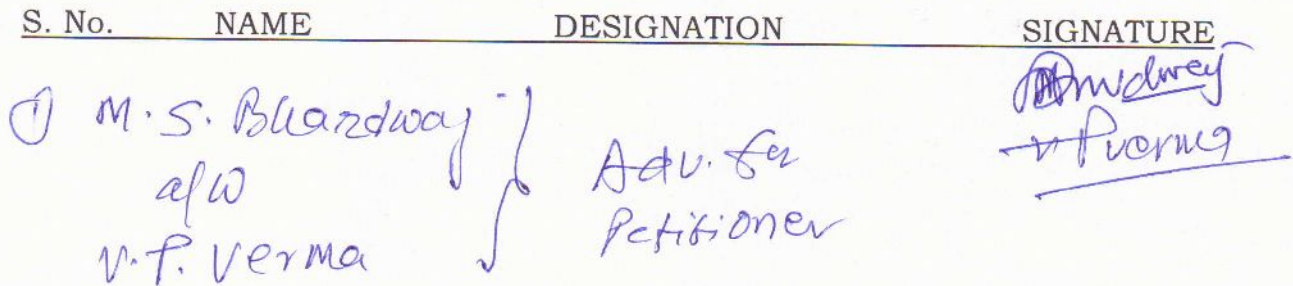 S. No. NAME DESIGNATION SIGNATURE
① M. S. Bhardwaj
a/w
V. P. Verma
Adv. for
Petitioner
VPverma